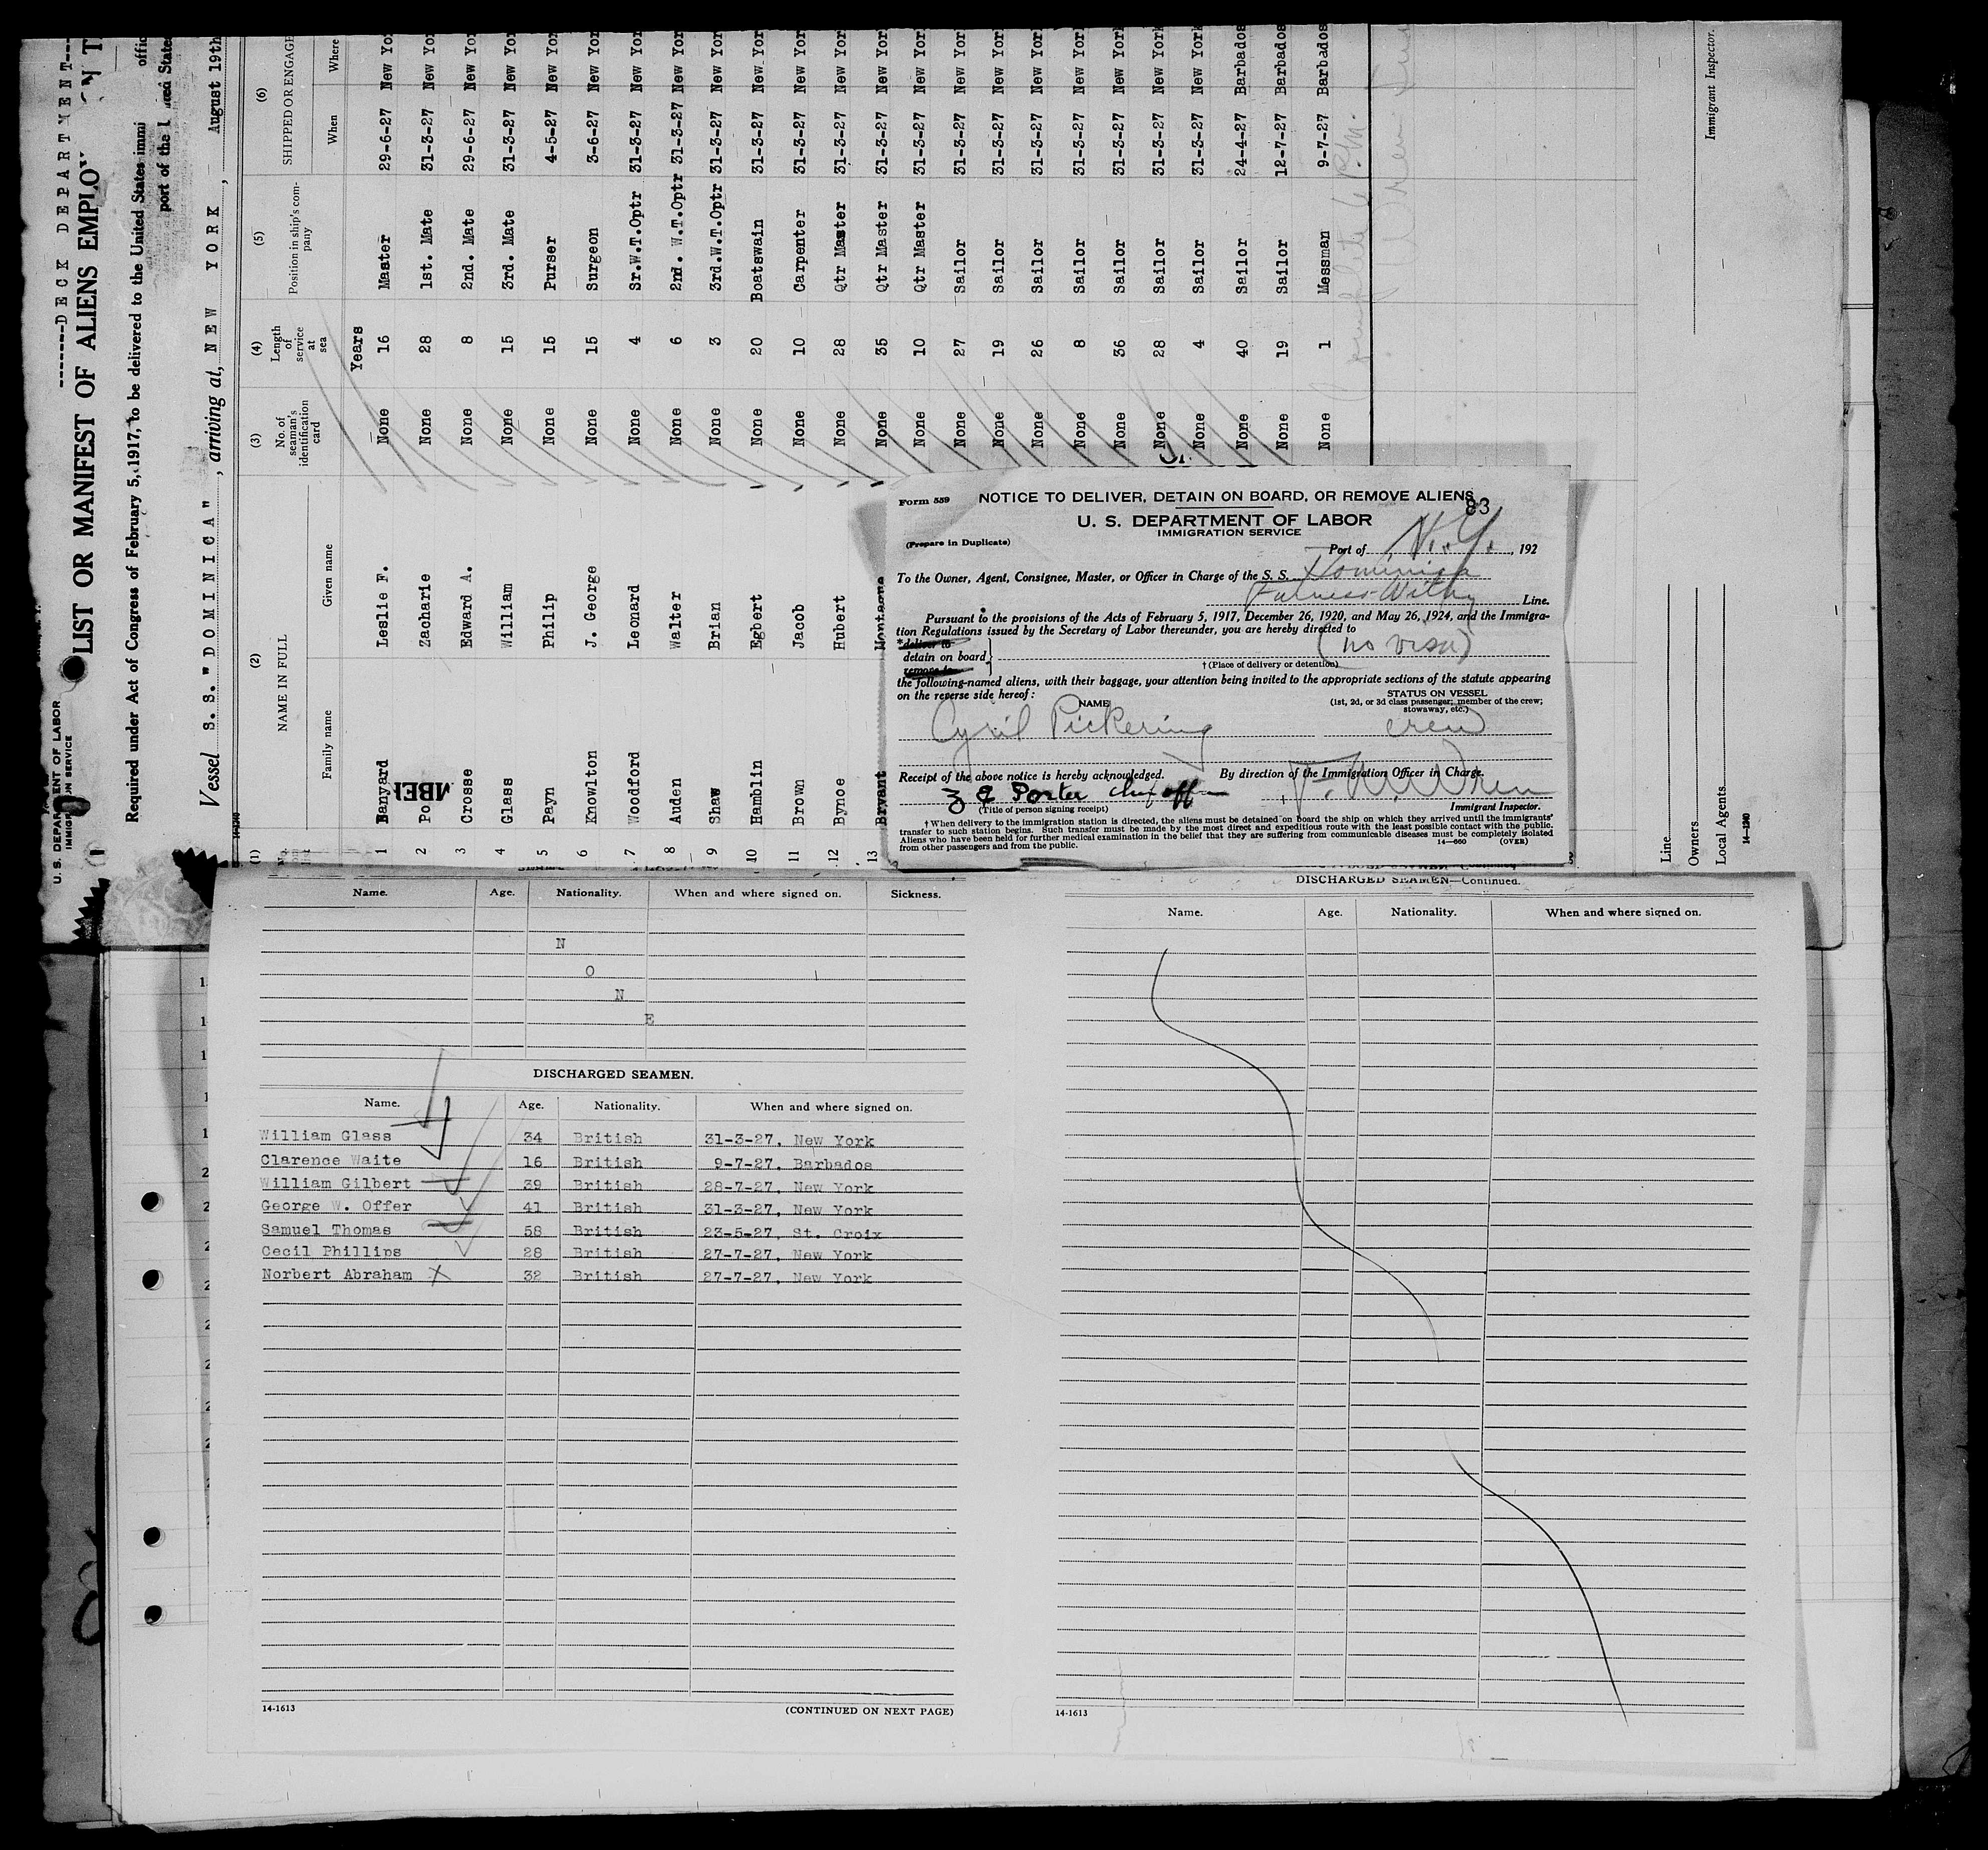 -------DECK DEPARTMENT---
LIST OR MANIFEST OF ALIENS EMPLOY
U. S. DEPARTMENT OF LABOR
IMMIGRATION SERVICE
Required under Act of Congress of February 5, 1917, to be delivered to the United States immi
port of the
Vessel S.S. "DOMINICA", arriving at, NEW YORK, August 19th
(1) (2) (3) (4) (5) (6)
NAME IN FULL No. of seaman's identification card Length of service at sea Position in ship's company SHIPPED OR ENGAGE
Family name Given name When Where
Years
1 Manyard Leslie F. None 16 Master 29-6-27 New Yor
2 Po Zacharie None 28 1st. Mate 31-3-27 New Yor
3 Crosse Edward A. None 8 2nd. Mate 29-6-27 New Yor
4 Glass William None 15 3rd. Mate 31-3-27 New Yor
5 Payn Philip None 15 Purser 4-5-27 New Yor
6 Knowlton J. George None 15 Surgeon 3-6-27 New Yor
7 Woodford Leonard None 4 Sr.W.T.Optr 31-3-27 New Yor
8 Auden Walter None 6 2nd. W.T.Optr 31-3-27 New Yor
9 Shaw Brian None 3 3rd.W.T.Optr 31-3-27 New Yor
10 Hamblin Egbert None 20 Boatswain 31-3-27 New Yor
11 Brown Jacob None 10 Carpenter 31-3-27 New Yor
12 Bynoe Hubert None 28 Qtr Master 31-3-27 New Yor
13 Bryant Montague None 35 Qtr Master 31-3-27 New Yor
None 10 Qtr Master 31-3-27 New Yor
None 27 Sailor 31-3-27 New Yor
None 19 Sailor 31-3-27 New Yor
None 26 Sailor 31-3-27 New Yor
None 8 Sailor 31-3-27 New Yor
None 36 Sailor 31-3-27 New York
None 28 Sailor 31-3-27 New York
None 4 Sailor 31-3-27 New York
None 40 Sailor 24-4-27 Barbados
None 19 Sailor 12-7-27 Barbados
None 1 Messman 9-7-27 Barbados
Immigrant Inspector.
Line
Owners
Local Agents
14-1240
Form 559 NOTICE TO DELIVER, DETAIN ON BOARD, OR REMOVE ALIENS
83
U. S. DEPARTMENT OF LABOR
IMMIGRATION SERVICE
(Prepare in Duplicate)
Port of N.Y., 192
To the Owner, Agent, Consignee, Master, or Officer in Charge of the S. S. Dominica
Furness Withy Line.
Pursuant to the provisions of the Acts of February 5, 1917, December 26, 1920, and May 26, 1924, and the Immigra-
tion Regulations issued by the Secretary of Labor thereunder, you are hereby directed to
*deliver to
detain on board (no visa)
remove to
† (Place of delivery or detention)
the following-named aliens, with their baggage, your attention being invited to the appropriate sections of the statute appearing
on the reverse side hereof:
NAME STATUS ON VESSEL
(1st, 2d, or 3d class passenger; member of the crew;
stowaway, etc.)
Cyril Pickering crew
Receipt of the above notice is hereby acknowledged. By direction of the Immigration Officer in Charge.
Porter Chf off
(Title of person signing receipt) Immigrant Inspector.
† When delivery to the immigration station is directed, the aliens must be detained on board the ship on which they arrived until the immigrants'
transfer to such station begins. Such transfer must be made by the most direct and expeditious route with the least possible contact with the public.
Aliens who have been held for further medical examination in the belief that they are suffering from communicable diseases must be completely isolated
from other passengers and from the public. 14-660 (OVER)
Name. Age. Nationality. When and where signed on. Sickness.
N
O
N
E
DISCHARGED SEAMEN.
Name. Age. Nationality. When and where signed on.
William Glass 34 British 31-3-27, New York
Clarence Waite 16 British 9-7-27, Barbados
William Gilbert 39 British 28-7-27, New York
George W. Offer 41 British 31-3-27, New York
Samuel Thomas 58 British 23-5-27, St. Croix
Cecil Phillips 28 British 27-7-27, New York
Norbert Abraham X 32 British 27-7-27, New York
14-1613 (CONTINUED ON NEXT PAGE)
DISCHARGED SEAMEN—Continued.
Name. Age. Nationality. When and where signed on.
14-1613